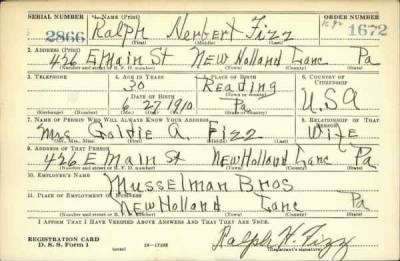 SERIAL NUMBER 1. NAME (Print) ORDER NUMBER
2866 Ralph Norbert Fizz 1672
(First) (Middle) (Last)
2. ADDRESS (Print)
426 E Main St New Holland Lanc Pa
(Number and street or R. F. D. number) (Town) (County) (State)
3. TELEPHONE 4. AGE IN YEARS 5. PLACE OF BIRTH 6. COUNTRY OF CITIZENSHIP
30 Reading
DATE OF BIRTH (Town or county)
6 27 1910 Pa U.S.A
(Exchange) (Number) (Mo.) (Day) (Yr.) (State or country)
7. NAME OF PERSON WHO WILL ALWAYS KNOW YOUR ADDRESS 8. RELATIONSHIP OF THAT PERSON
Mrs Goldie A. Fizz Wife
(Mr., Mrs., Miss) (First) (Middle) (Last)
9. ADDRESS OF THAT PERSON
426 E Main St New Holland Lanc Pa
(Number and street or R. F. D. number) (Town) (County) (State)
10. EMPLOYER'S NAME
Musselman Bros
11. PLACE OF EMPLOYMENT OR BUSINESS
New Holland Lanc Pa
(Number and street or R. F. D. number) (Town) (County) (State)
I AFFIRM THAT I HAVE VERIFIED ABOVE ANSWERS AND THAT THEY ARE TRUE.
REGISTRATION CARD
D. S. S. Form 1 (over) 16—17105 Ralph N. Fizz
(Registrant's signature)